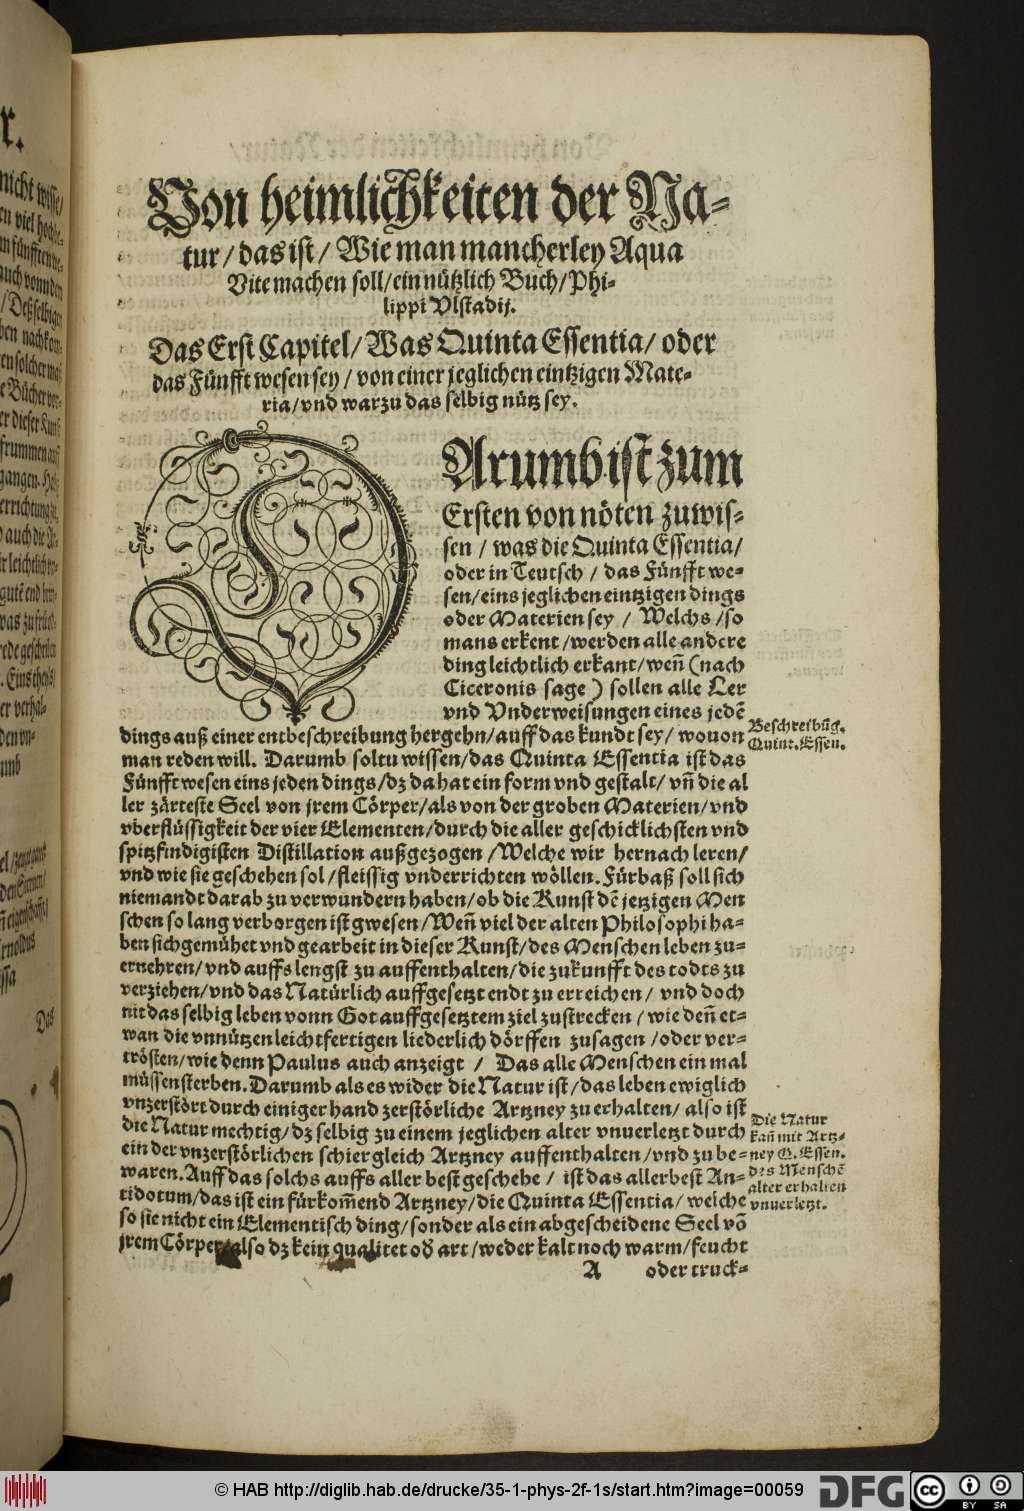 Von heimlichkeiten der Na-
tur / das ist / Wie man mancherley Aqua
Vite machen soll / ein nützlich Buch / Phi-
lippi Vlstadij.
Das Erst Capitel / Was Quinta Essentia / oder
das Fünfft wesen sey / von einer jeglichen eintzigen Mate-
ria / vnd warzu das selbig nütz sey.
DArumb ist zum
Ersten von nöten zuwis-
sen / was die Quinta Essentia /
oder in Teutsch / das Fünfft we-
sen / eins jeglichen eintzigen dings
oder Materien sey / Welchs / so
mans erkent / werden alle andere
ding leichtlich erkant / weñ (nach
Ciceronis sage) sollen alle Ler
vnd Vnderweisungen eines jedẽ
dings auß einer entbeschreibung hergehn / auff das kundt sey / wouon
man reden will. Darumb soltu wissen / das Quinta Essentia ist das
Fünfft wesen eins jeden dings / dz da hat ein form vnd gestalt / vñ die al
ler zärteste Seel von jrem Cörper / als von der groben Materien / vnd
vberflüssigkeit der vier Elementen / durch die aller geschicklichsten vnd
spitzfindigisten Distillation außgezogen / Welche wir hernach leren /
vnd wie sie geschehen sol / fleissig vnderrichten wöllen. Fürbaß soll sich
niemandt darab zu verwundern haben / ob die Kunst dẽ jetzigen Men
schen so lang verborgen ist gwesen / Weñ viel der alten Philosophi ha-
ben sich gemühet vnd gearbeit in dieser Kunst / des Menschen leben zu-
ernehren / vnd auffs lengst zu auffenthalten / die zukunfft des todts zu
verziehen / vnd das Natürlich auffgesetzt endt zu erreichen / vnd doch
nit das selbig leben vonn Got auffgesetztem ziel zustrecken / wie deñ et-
wan die vnnützen leichtfertigen liederlich dörffen zusagen / oder ver-
trösten / wie denn Paulus auch anzeigt / Das alle Menschen ein mal
müssen sterben. Darumb als es wider die Natur ist / das leben ewiglich
vnzerstört durch einiger hand zerstörliche Artzney zu erhalten / also ist
die Natur mechtig / dz selbig zu einem jeglichen alter vnuerletzt durch
ein der vnzerstörlichen schier gleich Artzney auffenthalten / vnd zu be-
waren. Auff das solchs auffs aller best geschehe / ist das allerbest An-
tidotum / das ist ein fürkom̃end Artzney / die Quinta Essentia / welche
so sie nicht ein Elementisch ding / sonder als ein abgescheidene Seel võ
jrem Cörper / also dz kein qualitet od̕ art / weder kalt noch warm / feucht
A oder truck-
Beschreibũg.
Quint. Essen.
Die Natur
kañ mit Artz-
ney Q. Essen.
des Menschẽ
alter erhalten
vnuerletzt.
© HAB http://diglib.hab.de/drucke/35-1-phys-2f-1s/start.htm?image=00059
DFG
cc
BY SA